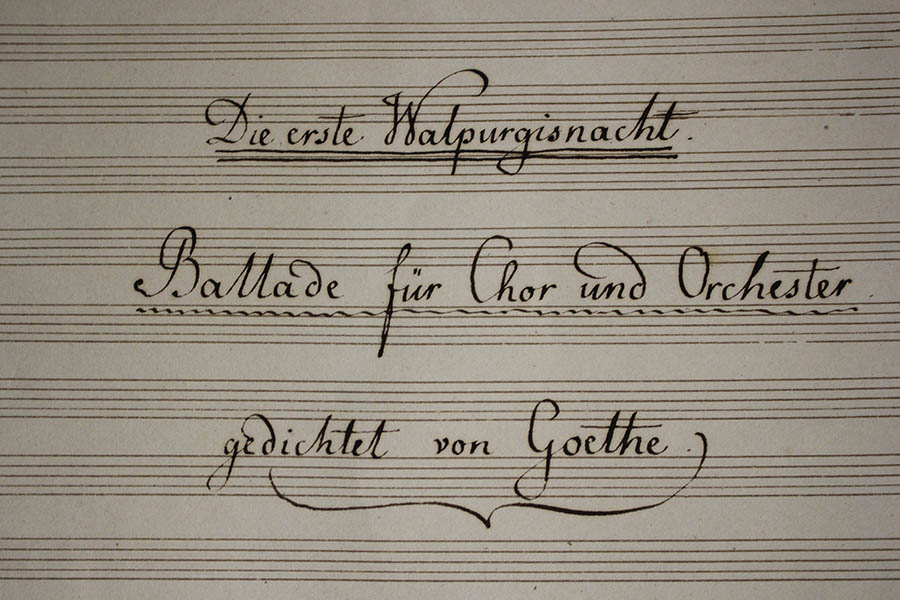 Die erste Walpurgisnacht.
Ballade für Chor und Orchester.
gedichtet von Goethe.